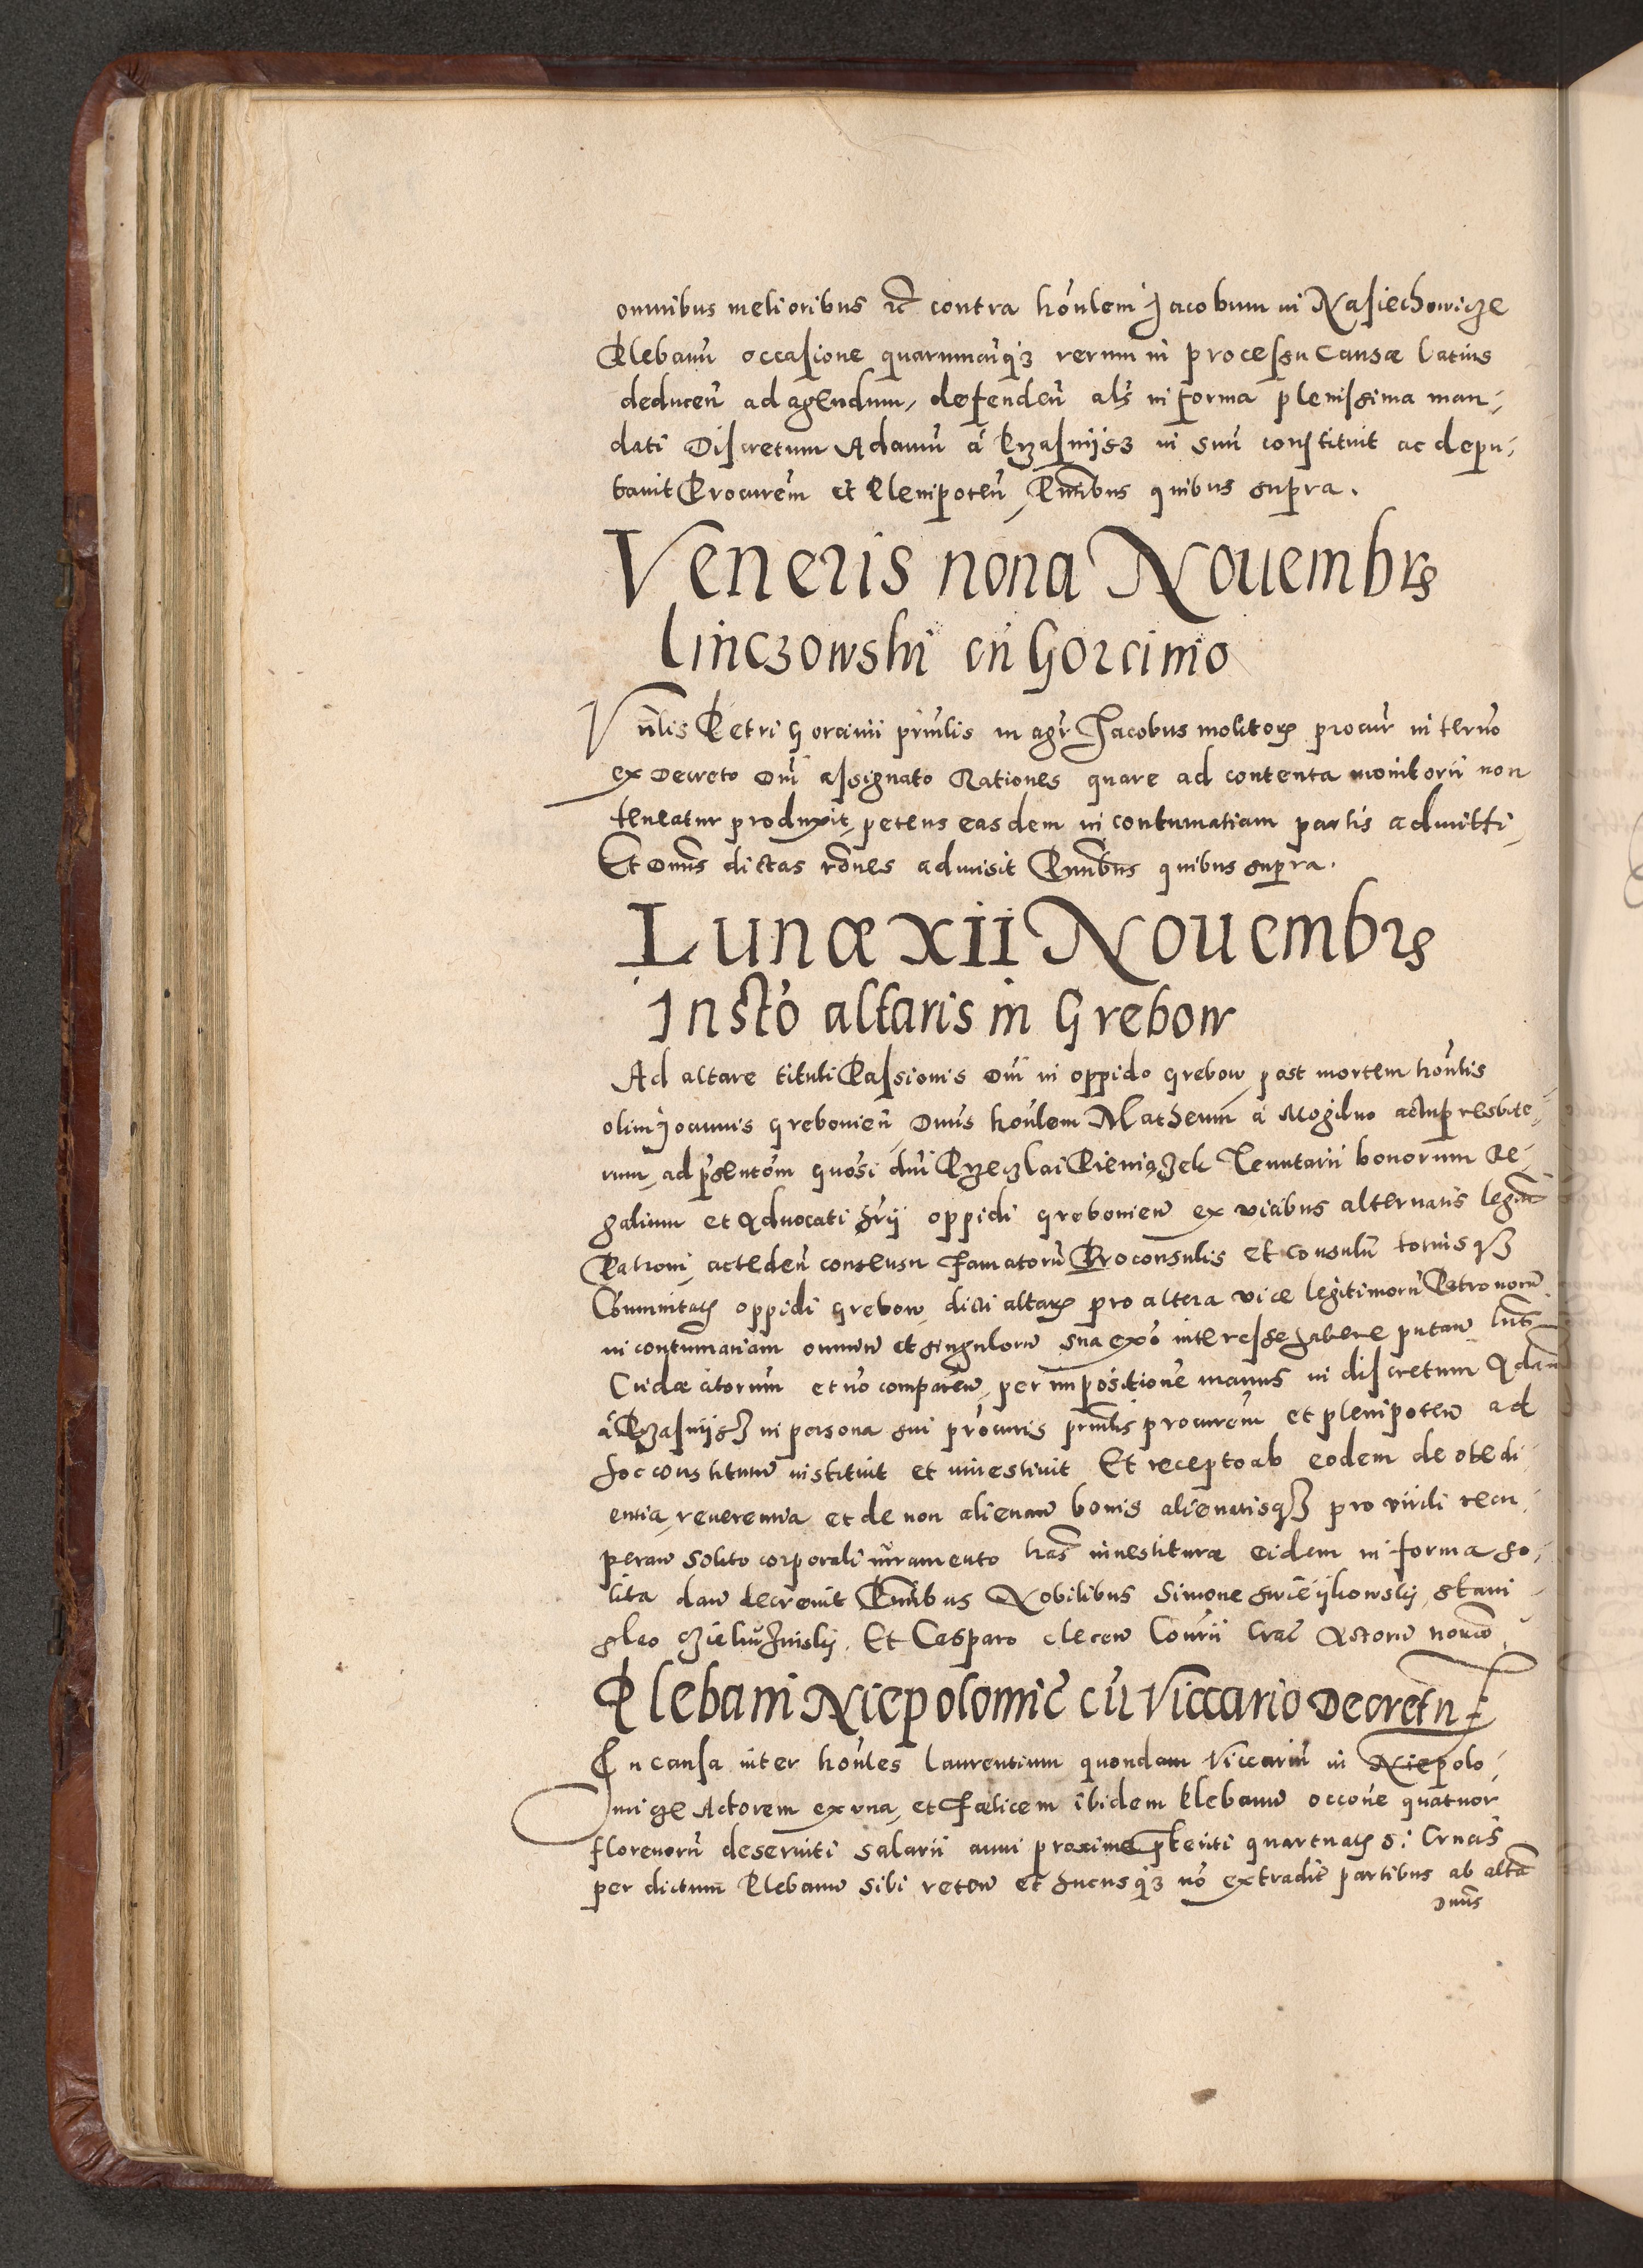 omnibus melioribus etc contra honlem Jacobum in Nasiechowicze
Plebanu occasione quarumcuqz rerum in processu causæ latius
deducen ad agendum, defenden als in forma plenissima man-
dati Discretum Adamu a Krzasnijsz in suu constituit ac depu-
tavit Procurem et Plenipoten, Pntibus quibus supra.
Veneris nona Nouembris
Linczowski cu Gorcinio
Vnlis Petri Gorcinii prinlis magr Jacobus molitoris procur in termo
ex Decreto Dni assignato Rationes quare ad contenta monitorii non
teneatur produxit, petens easdem in contumatiam partis admitti,
Et Dnus dictas rones admisit Pntibus quibus supra.
Lunæ XII Nouembris
Insto altaris in Grebow
Ad altare tituli Passionis Dni in oppido Grebow, post mortem honlis
olim Joannis Grebovien, Dnus honlem Matheum a Mogilno actu presbite-
rum, ad psentom gnosi dni Przeczlai Pieniązek Tenutarii bonorum Re-
galium et Aduocati hrij oppidi Grebouien ex vicibus alternatis legitti
Patroni, acceden consensu famatoru Proconsulis et consulu totiusqz
Comunitatis oppidi Grebow, dicti altaris pro altera vice legitimoru Patronoru
in contumatiam omniu et singuloru sua exo interesse habere putan
citatorum et no comparen, per impositione manus in discretum Adam
a Krzasnijsz in persona sui procuris prinlis procurem et plenipoten ad
hoc constitutu instituit et inuestiuit Et recepto ab eodem de obedi-
entia, reuerentia et de non alienan bonis alienatisqz pro virili recu-
peran solito corporali iuramento lras inuestituræ eidem in forma so-
lita dan decreuit Pntibus Nobilibus Simone Swieijkowskij, Stani-
slao Et Casparo clecen Cons̄rii Crac Actoru notario
Plebani Niepolomic cu Viccario Decretu
In causa inter honles Laurentium quondam Viccariu in Niepolo-
micze Actorem ex vna, et Fælicem ibidem Plebanu occone quatuor
florenoru deseruiti salarii anni proxime pteriti quartualis S. Crucis
per dictum Plebanu sibi reten et hucusqz no extradit partibus ab altra
Dnus